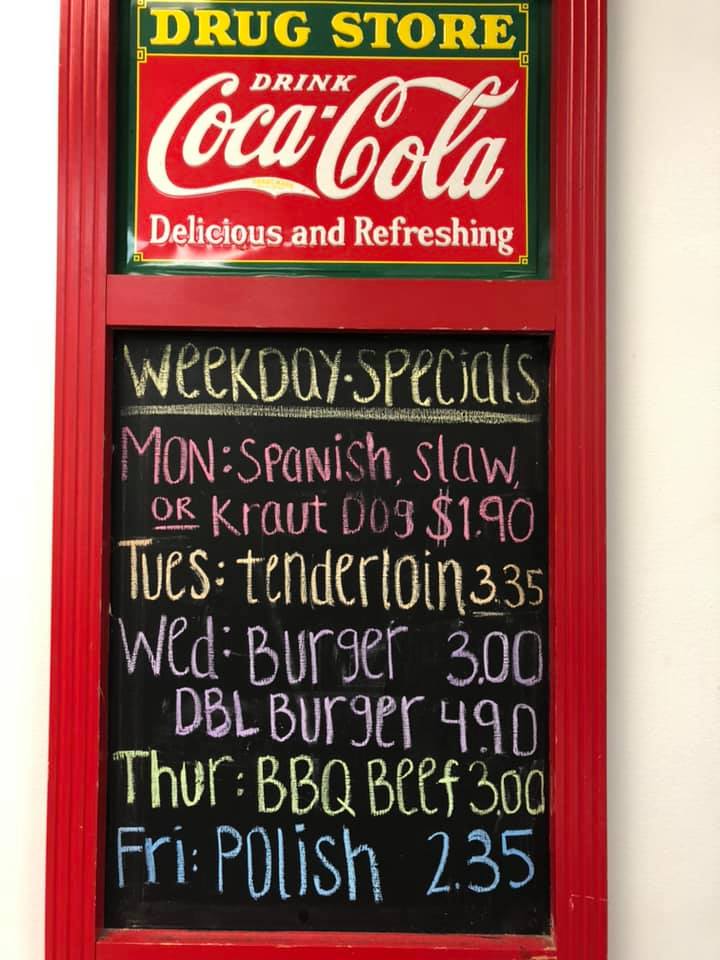 DRUG STORE
DRINK
Coca-Cola
Delicious and Refreshing
Weekday·Specials
Mon: Spanish, slaw,
OR Kraut Dog $1.90
Tues: tenderloin 3.35
Wed: Burger 3.00
DBL Burger 4.90
Thur: BBQ Beef 300
Fri: Polish 2.35